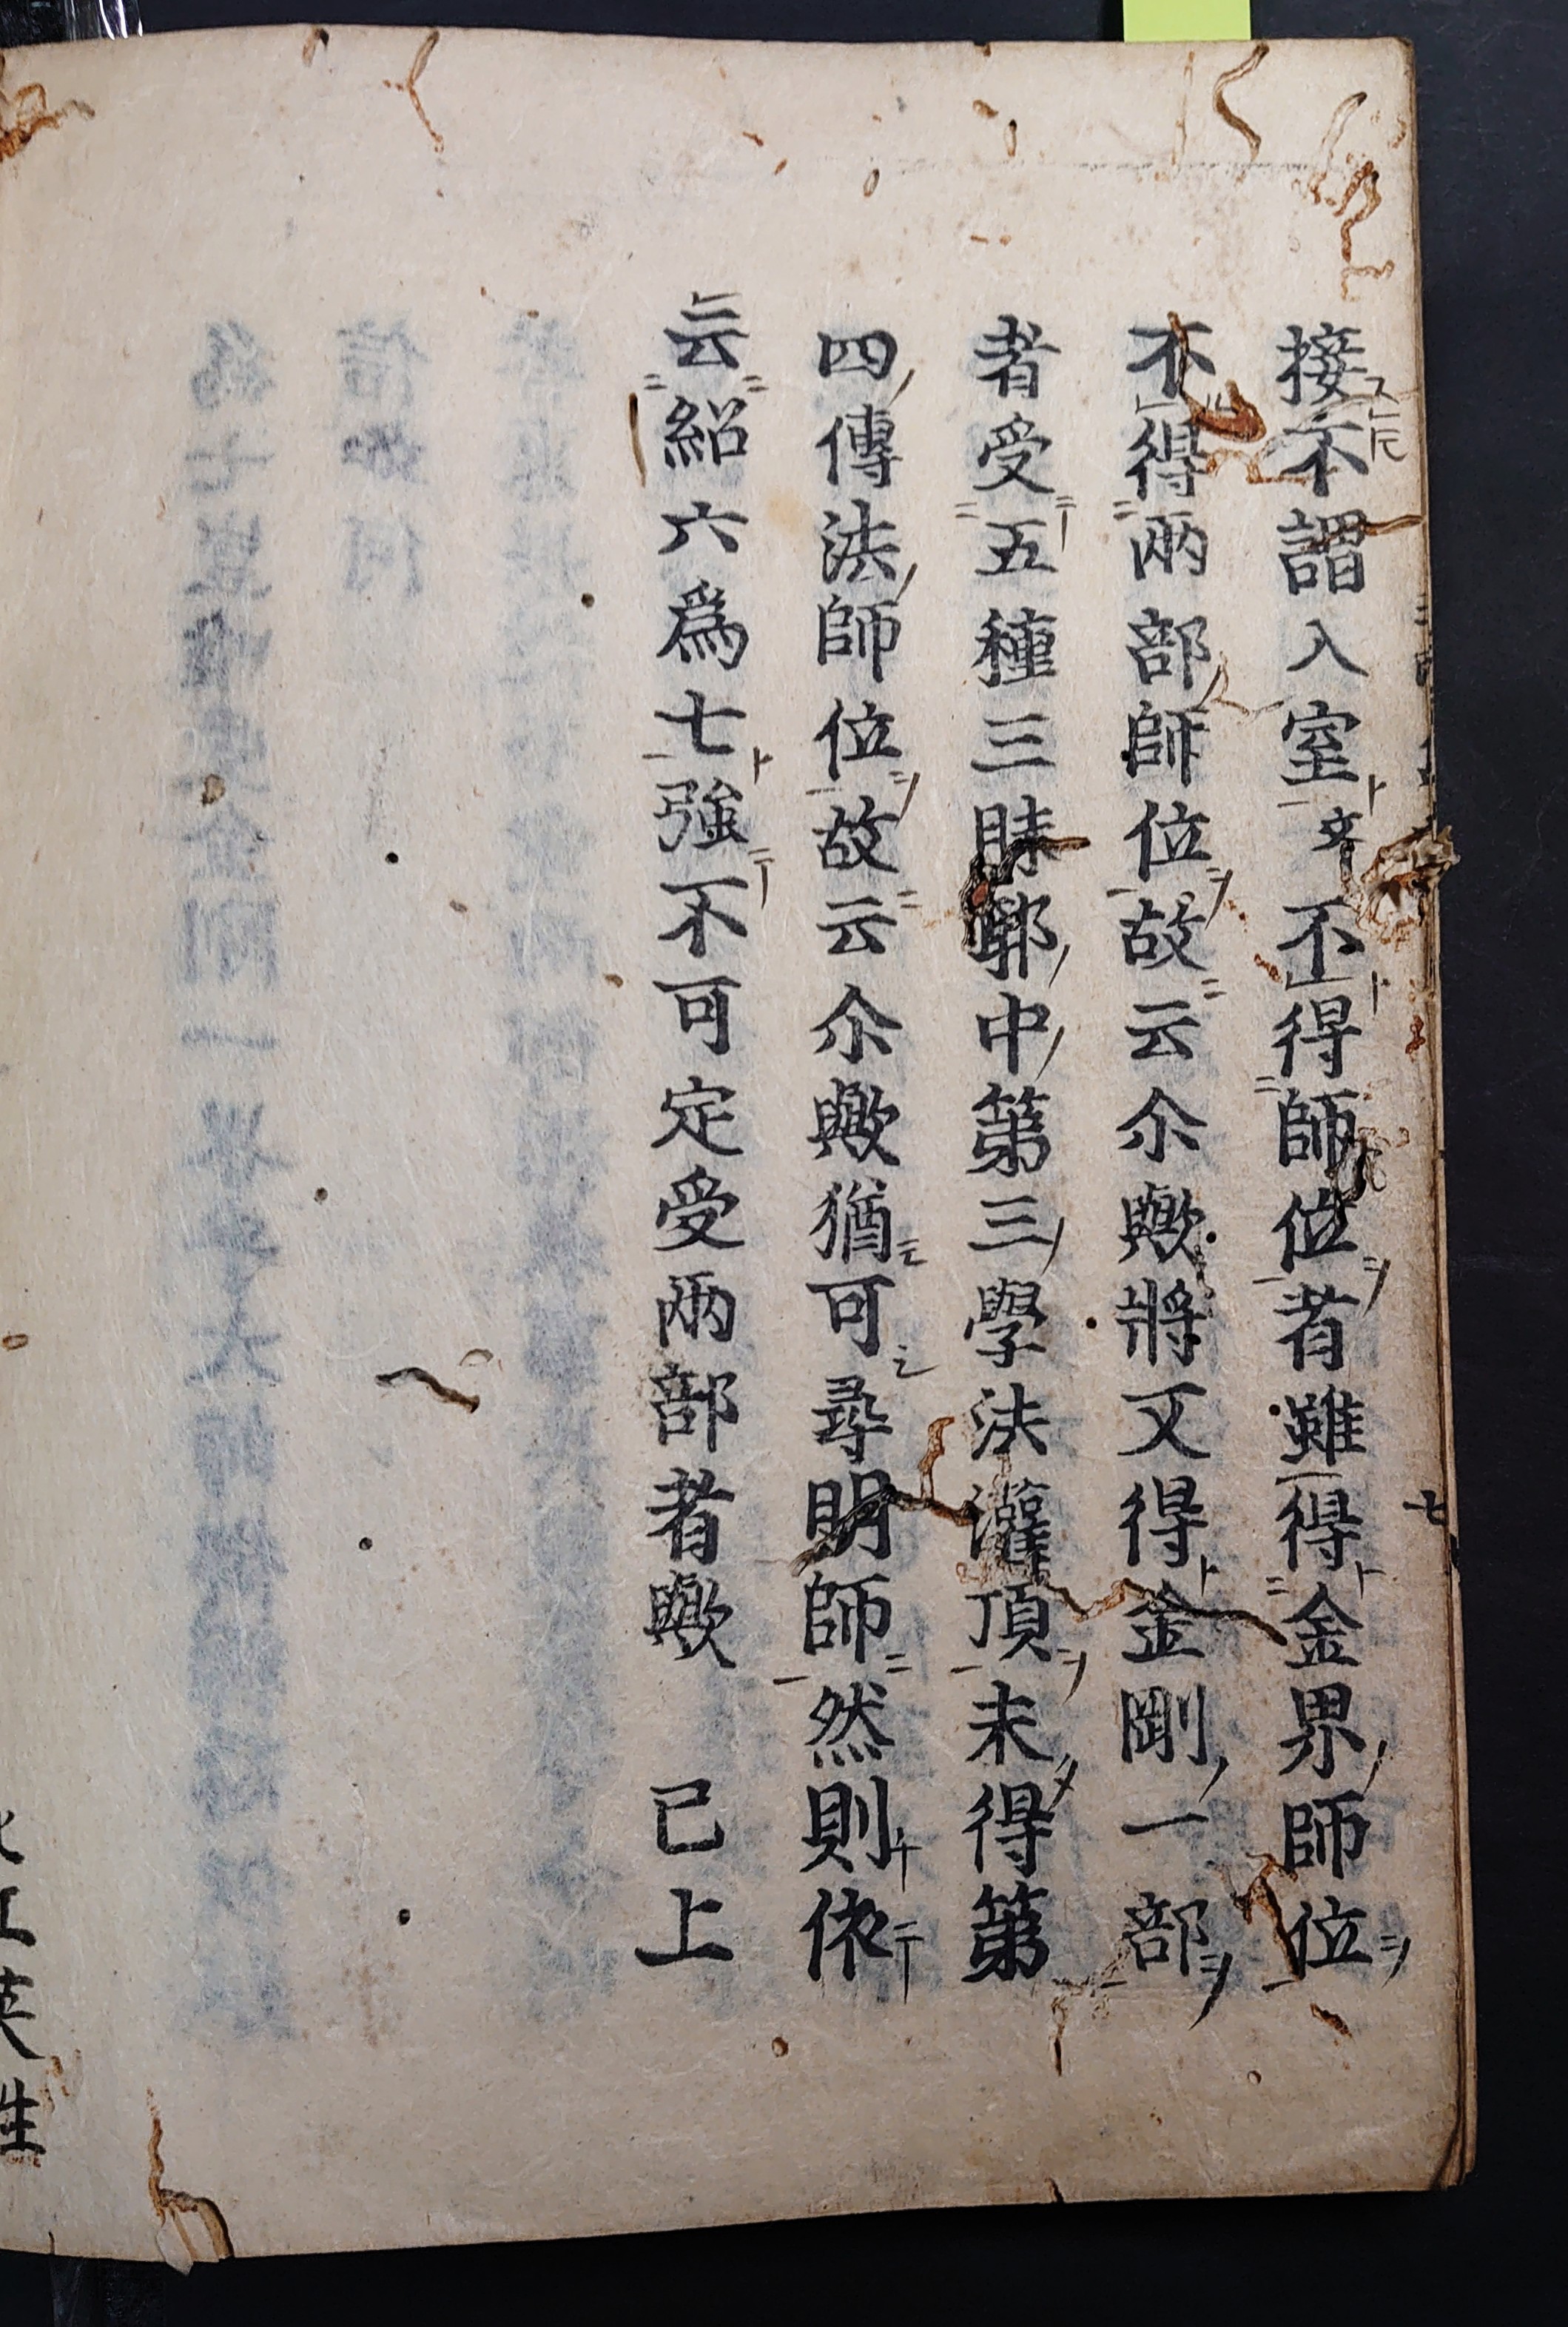 接不謂入室文不得師位者雖得金界師位
不得兩部師位故云尒歟將又得金剛一部
者受五種三昧耶中第三學法灌頂未得第
四傳法師位故云尒歟猶可尋明師然則依
云紹六爲七強不可定受兩部者歟 已上
七